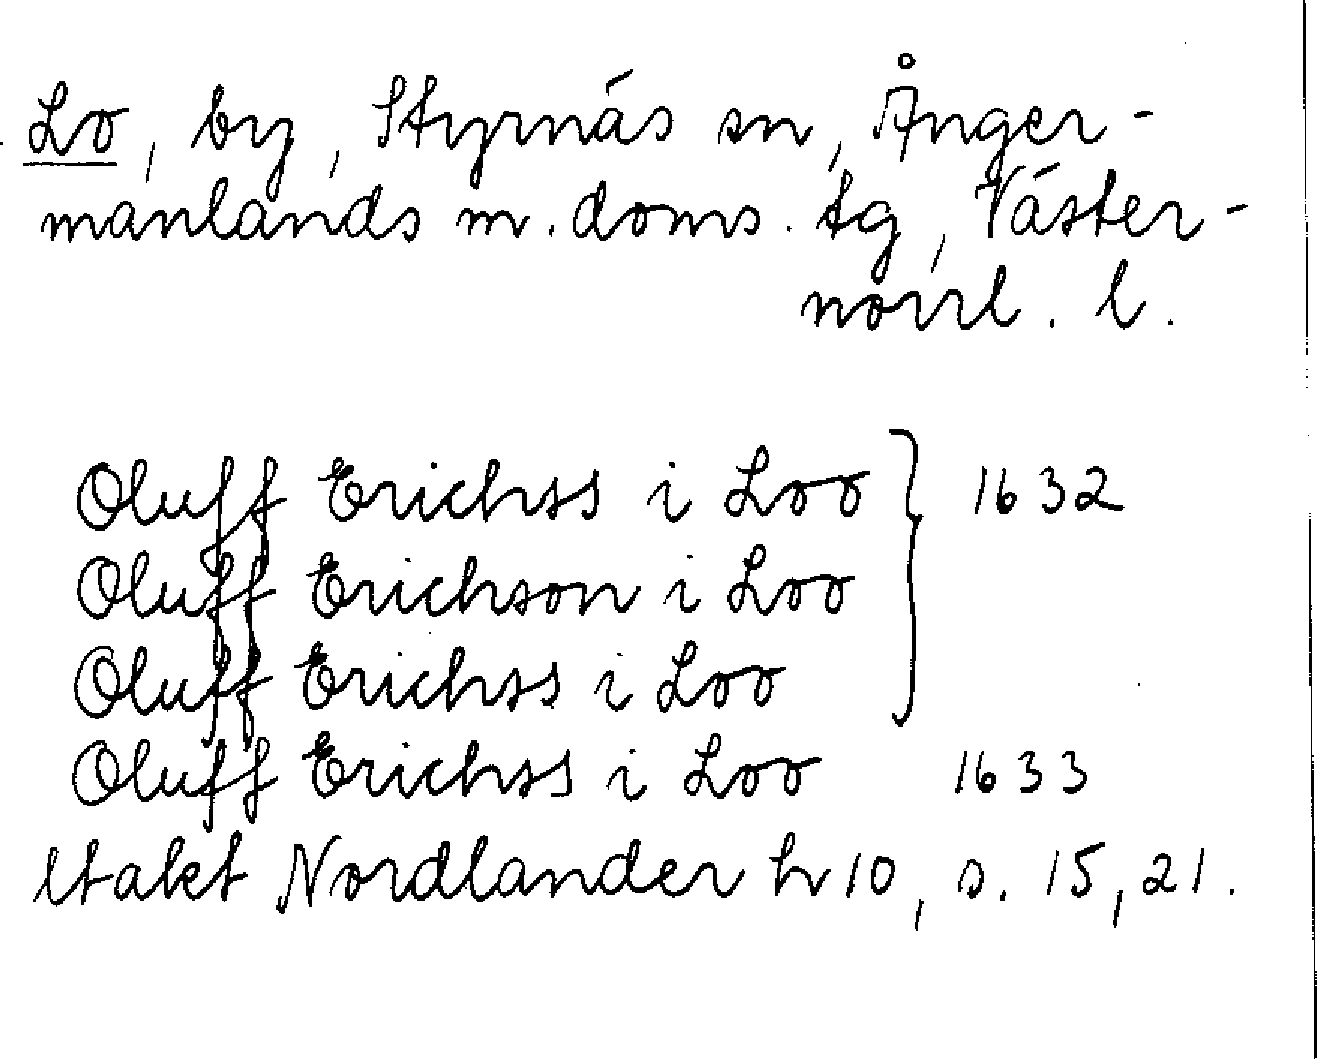 Lo, by, Styrnäs sn, Ånger-
manlands m. doms. tg, Väster-
norrl. l.
Oluff Erichss i Loo } 1632
Oluff Erichson i Loo
Oluff Erichss i Loo
Oluff Erichss i Loo 1633
Utakt Nordlander hr 10, s. 15, 21.